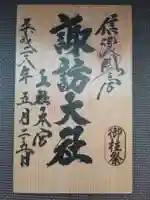 信濃國一之宮
諏訪大社
上社本宮
平成二八年五月二五日
御柱祭